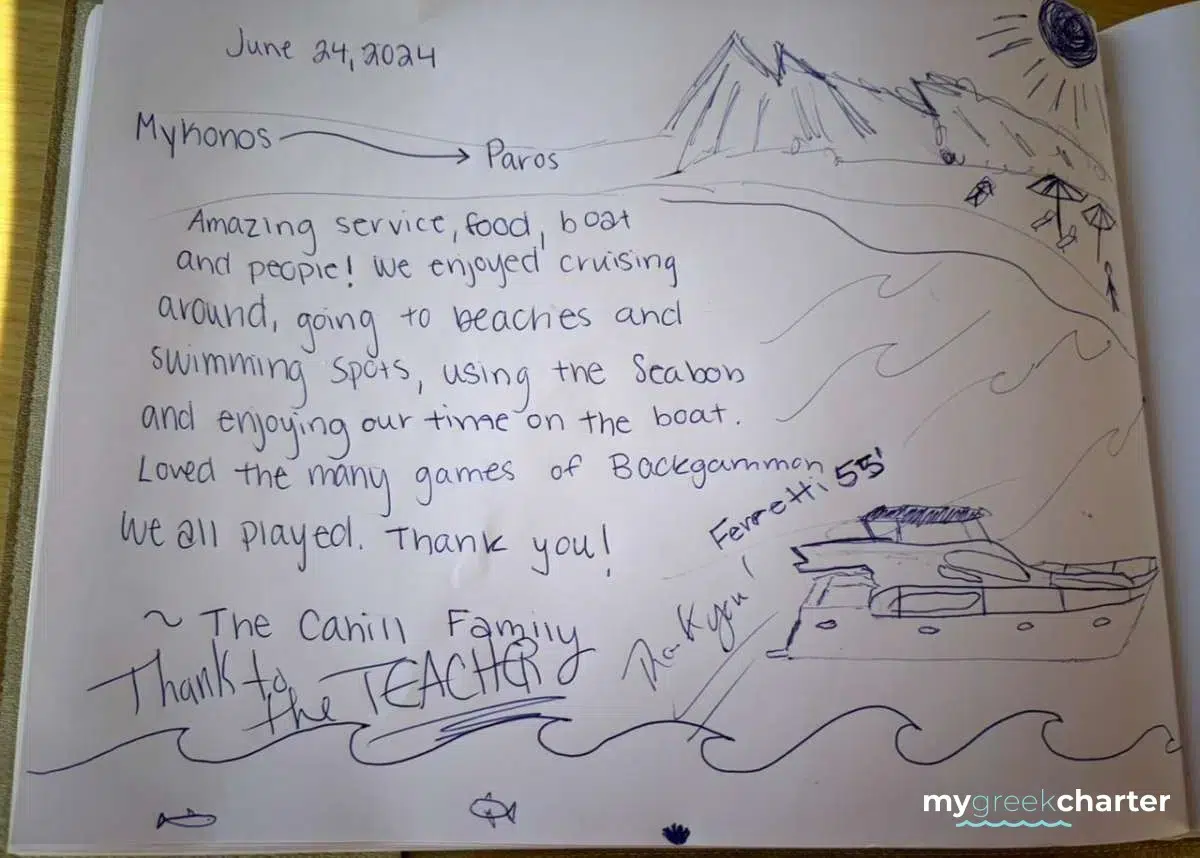 June 24, 2024
Mykonos → Paros
Amazing service, food, boat
and people! We enjoyed cruising
around, going to beaches and
swimming spots, using the Seabob
and enjoying our time on the boat.
Loved the many games of Backgammon
We all played. Thank you!
~ The Cahill Family
Thank to
the TEACHER
Ferretti 55'
Thank you!
mygreekcharter